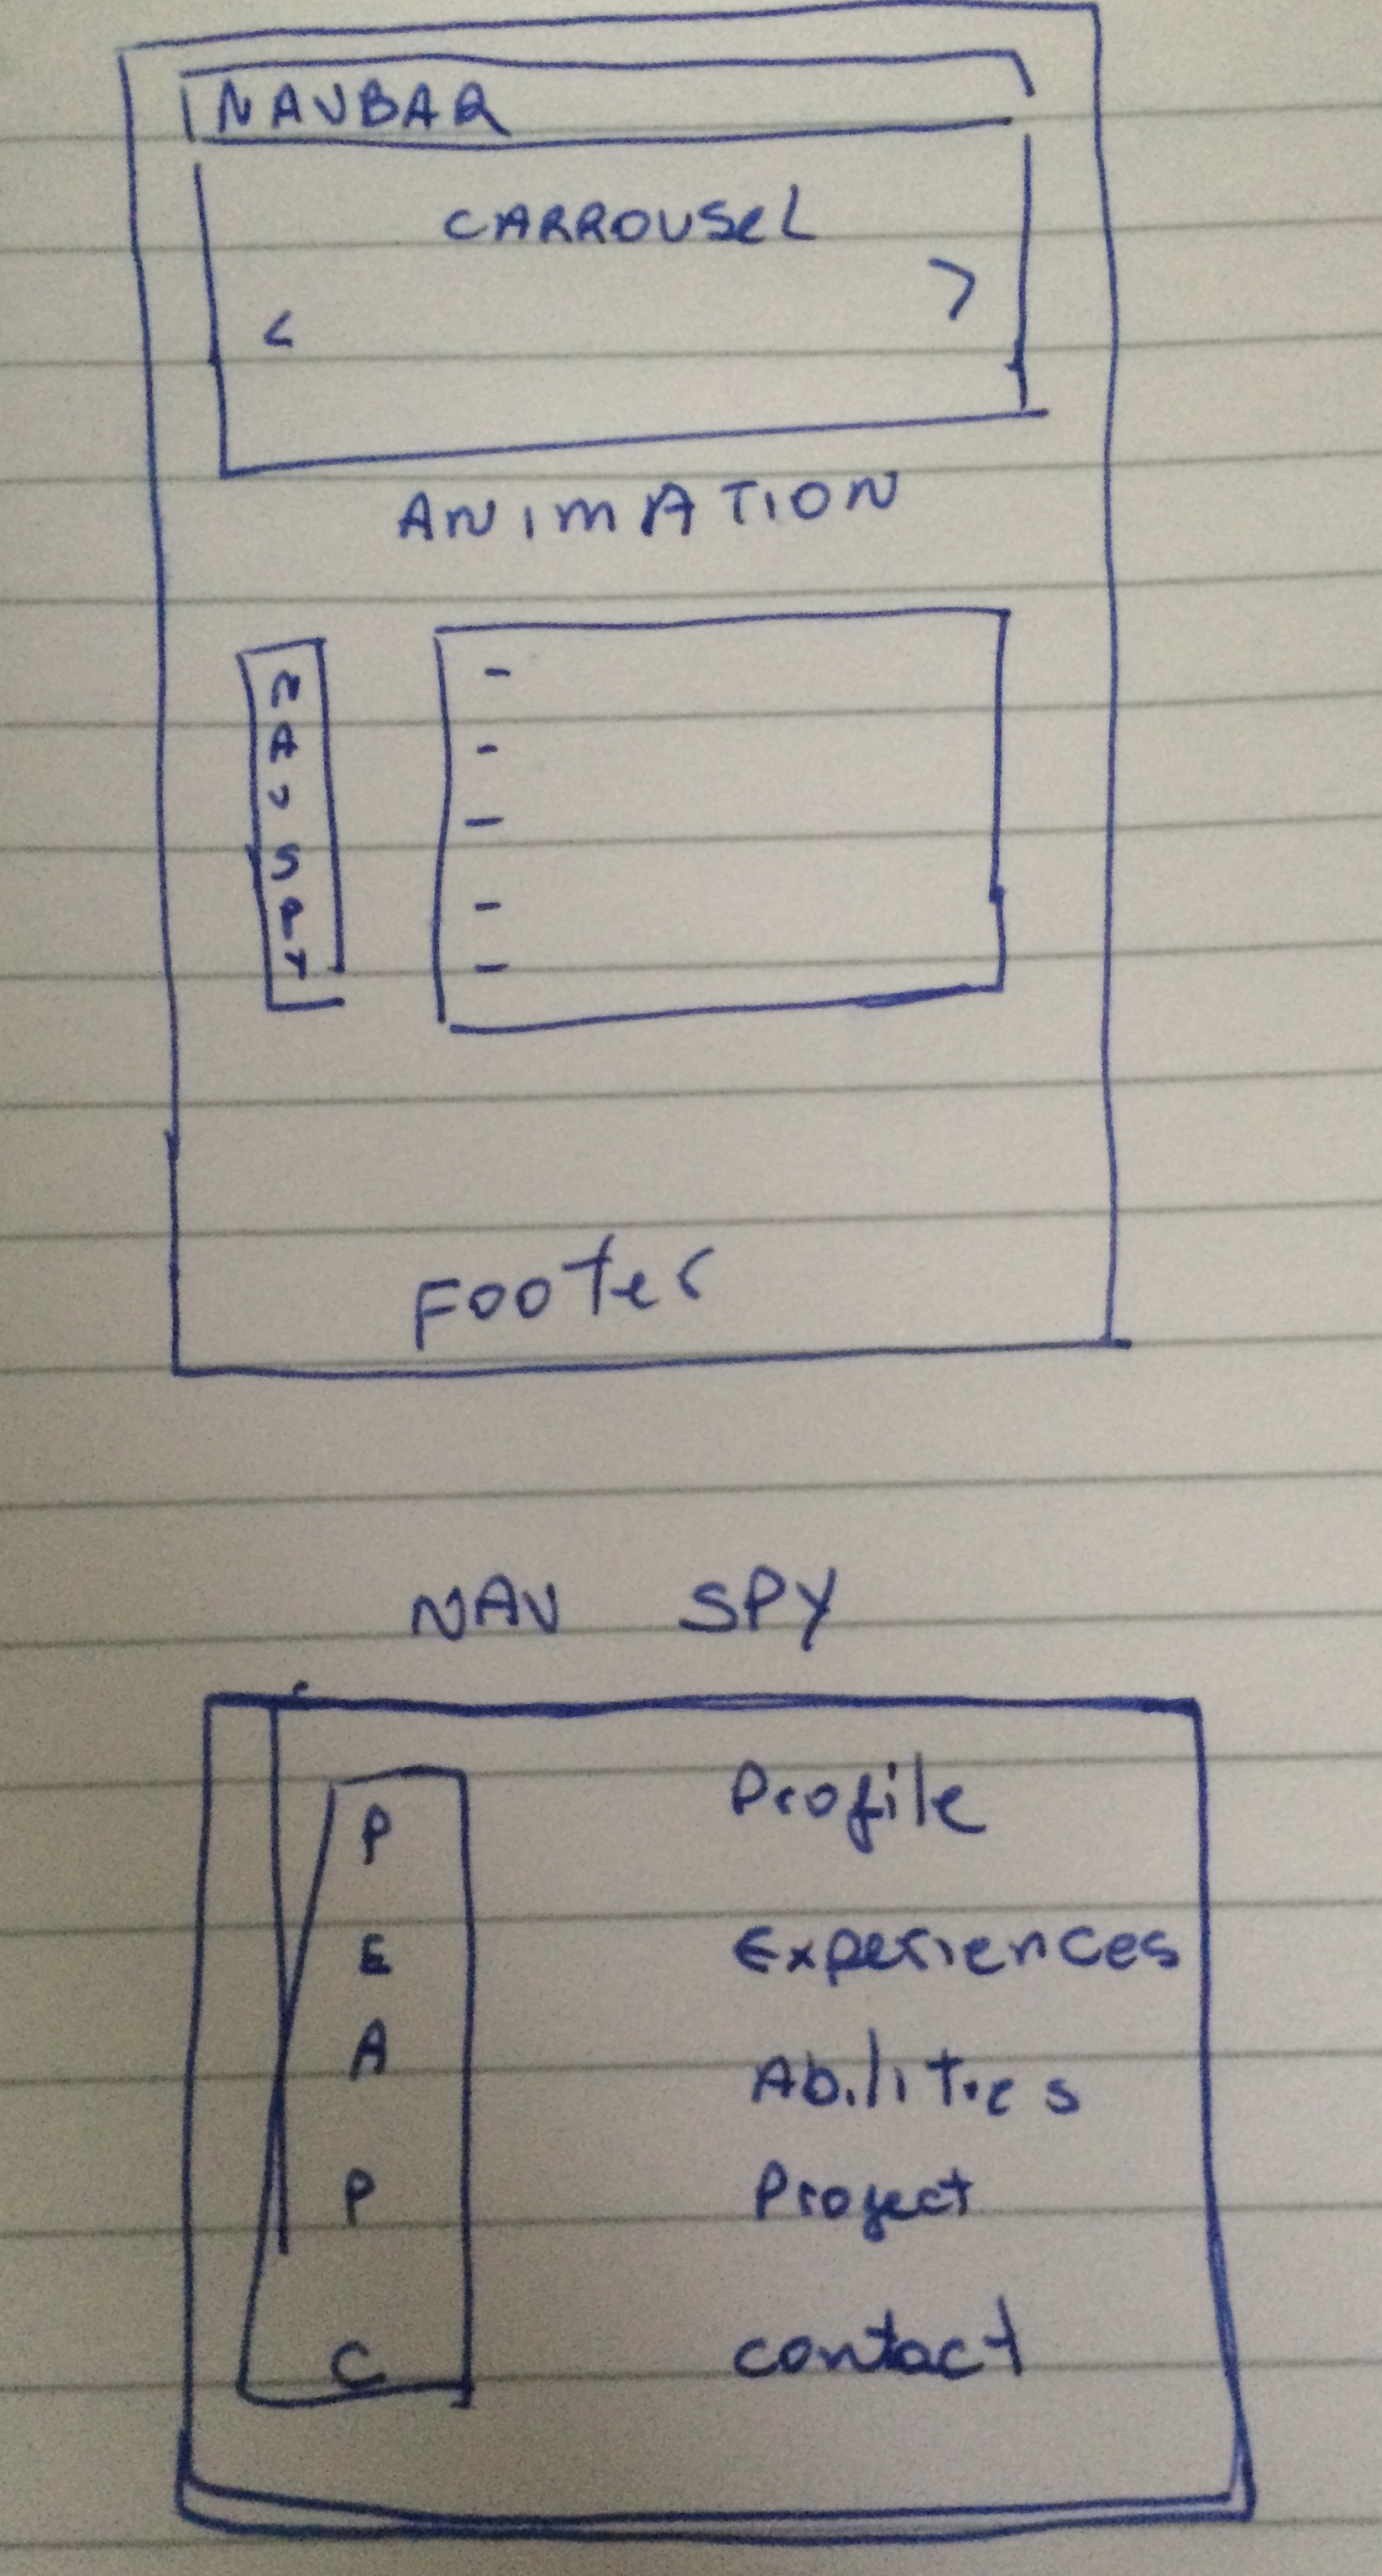 NAVBAR
CARROUSeL
< >
ANIMATION
N
A
V
S
P
Y
-
-
-
-
-
Footer
NAV SPY
P Profile
E Experiences
A Abilities
P Proyect
C contact